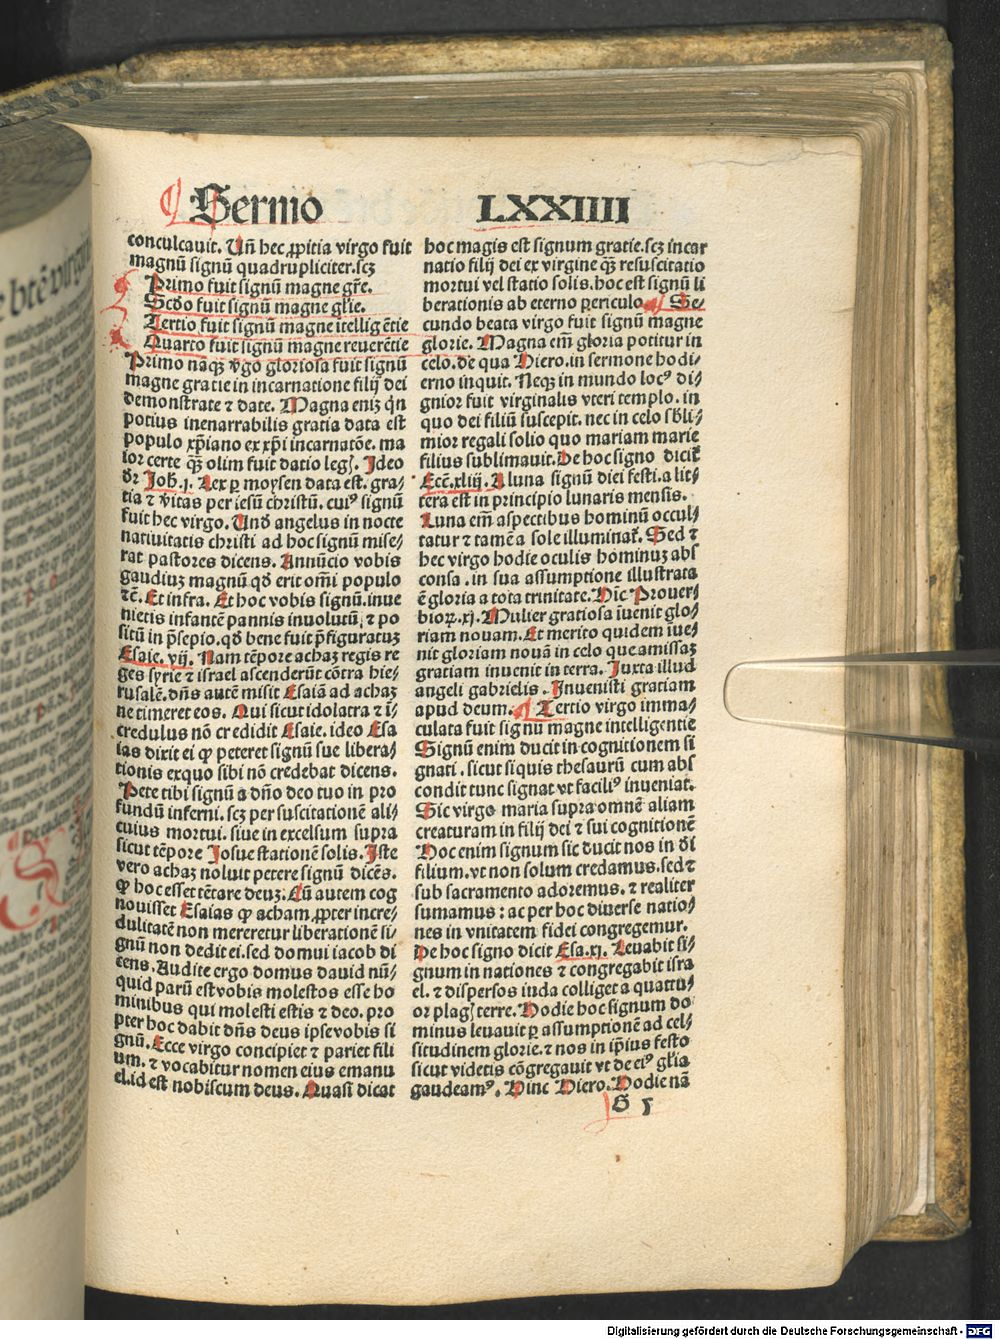 Sermo LXXIIII
conculcauit. Uñ hec ꝓpitia virgo fuit
magnũ signũ quadrupliciter.scꝫ
Primo fuit signũ magne gr̃e.
Scd̃o fuit signũ magne gl̃ie.
Tertio fuit signũ magne ĩtelligẽtie
Quarto fuit signũ magne reuerẽtie
Primo nāqꝫ v̾go gloriosa fuit signũ
magne gratie in incarnatione filij dei
demonstrate ⁊ date. Magna eniꝫ q̃n
potius inenarrabilis gratia data est
populo xp̃iano ex xp̃i incarnatõe. ma
ior certe qꝫ̃ olim fuit datio legꝭ. Ideo
dr̃ Joh̃.j. Lex ꝑ moysen data est. gra⸗
tia ⁊ v̾itas per iesũ christũ. cuiꝰ signũ
fuit hec virgo. Und̃ angelus in nocte
natiuitatis christi ad hoc signũ mise⸗
rat pastores dicens. Annũcio vobis
gaudiuꝫ magnũ qd̃ erit om̃i populo
⁊c̃. Et infra. Et hoc vobis signũ. inue
nietis infantẽ pannis inuolutũ, ⁊ po
sitũ in p̃sepio. qd̃ bene fuit p̃figuratuꝫ
Esaie. vij. Nam tẽpore achaꝫ regis re
ges syrie ⁊ israel ascenderũt cõtra hie⸗
rusalẽ. dñs autẽ misit Esaiã ad achaꝫ
ne timeret eos. Qui sicut idolatra ⁊ ĩ⸗
credulus nõ credidit Esaie. ideo Esa
ias dixit ei ꝙ peteret signũ sue libera⸗
tionis exquo sibi nõ credebat dicens.
Pete tibi signũ a dño deo tuo in pro
fundũ inferni. scꝫ per suscitationẽ ali⸗
cuius mortui. siue in excelsum supra
sicut tẽpore Josue stationẽ solis. Iste
vero achaꝫ noluit petere signũ dicẽs.
ꝙ hoc esset tẽtare deuꝫ. Cũ autem cog
nouisset Esaias ꝙ acham ꝓpter incre⸗
dulitatẽ non mereretur liberationẽ si⸗
gnũ non dedit ei. sed domui iacob di
cens. Audite ergo domus dauid nũ⸗
quid parũ est vobis molestos esse ho
minibus qui molesti estis ⁊ deo. pro
pter hoc dabit dñs deus ipse vobis si
gnũ. Ecce virgo concipiet ⁊ pariet fili
um. ⁊ vocabitur nomen eius emanu
el. id est nobiscum deus. Quasi dicat
hoc magis est signum gratie. scꝫ incar
natio filij dei ex virgine qꝫ̃ resuscitatio
mortui vel statio solis. hoc est signũ li
berationis ab eterno periculo. Se⸗
cundo beata virgo fuit signũ magne
glorie. Magna em̃ gloria potitur in
celo. de qua Hiero. in sermone hodi⸗
erno inquit. Neqꝫ in mundo locꝰ di⸗
gnior fuit virginalis vteri templo. in
quo dei filiũ suscepit. nec in celo sb̃li⸗
mior regali solio quo mariam marie
filius sublimauit. De hoc signo dicit̃
Ecc̃.xliij. A luna signũ diei festi. a lit⸗
tera est in principio lunaris mensis.
Luna em̃ aspectibus hominũ occul⸗
tatur ⁊ tamẽ a sole illuminat̃. Sed ⁊
hec virgo hodie oculis hominuꝫ abs
consa. in sua assumptione illustrata
ẽ gloria a tota trinitate. Hĩc Prouer⸗
bioꝝ.xj. Mulier gratiosa ĩuenit glo⸗
riam nouam. Et merito quidem ĩue⸗
nit gloriam nouã in celo que amissaꝫ
gratiam inuenit in terra. Juxta illud
angeli gabrielis. Inuenisti gratiam
apud deum. Tertio virgo imma⸗
culata fuit signũ magne intelligentie
Signũ enim ducit in cognitionem si
gnati. sicut siquis thesaurũ cum abs
condit tunc signat vt faciliꝰ inueniat.
Sic virgo maria supra omnẽ aliam
creaturam in filij dei ⁊ sui cognitionẽ
Hoc enim signum sic ducit nos in d̃i
filium. vt non solum credamus. sed ⁊
sub sacramento adoremus. ⁊ realiter
sumamus : ac per hoc diuerse natio⸗
nes in vnitatem fidei congregemur.
De hoc signo dicit Esa.xj. Leuabit si⸗
gnum in nationes ⁊ congregabit isra
el. ⁊ dispersos iuda colliget a quattu⸗
or plagꝭ terre. Hodie hoc signum do
minus leuauit ꝑ assumptionẽ ad cel⸗
situdinem glorie. ⁊ nos in ip̃ius festo
sicut videtis cõgregauit vt de eiꝰ gl̃ia
gaudeamꝰ. Hinc Hiero. Hodie nã
S 5
Digitalisierung gefördert durch die Deutsche Forschungsgemeinschaft - DFG